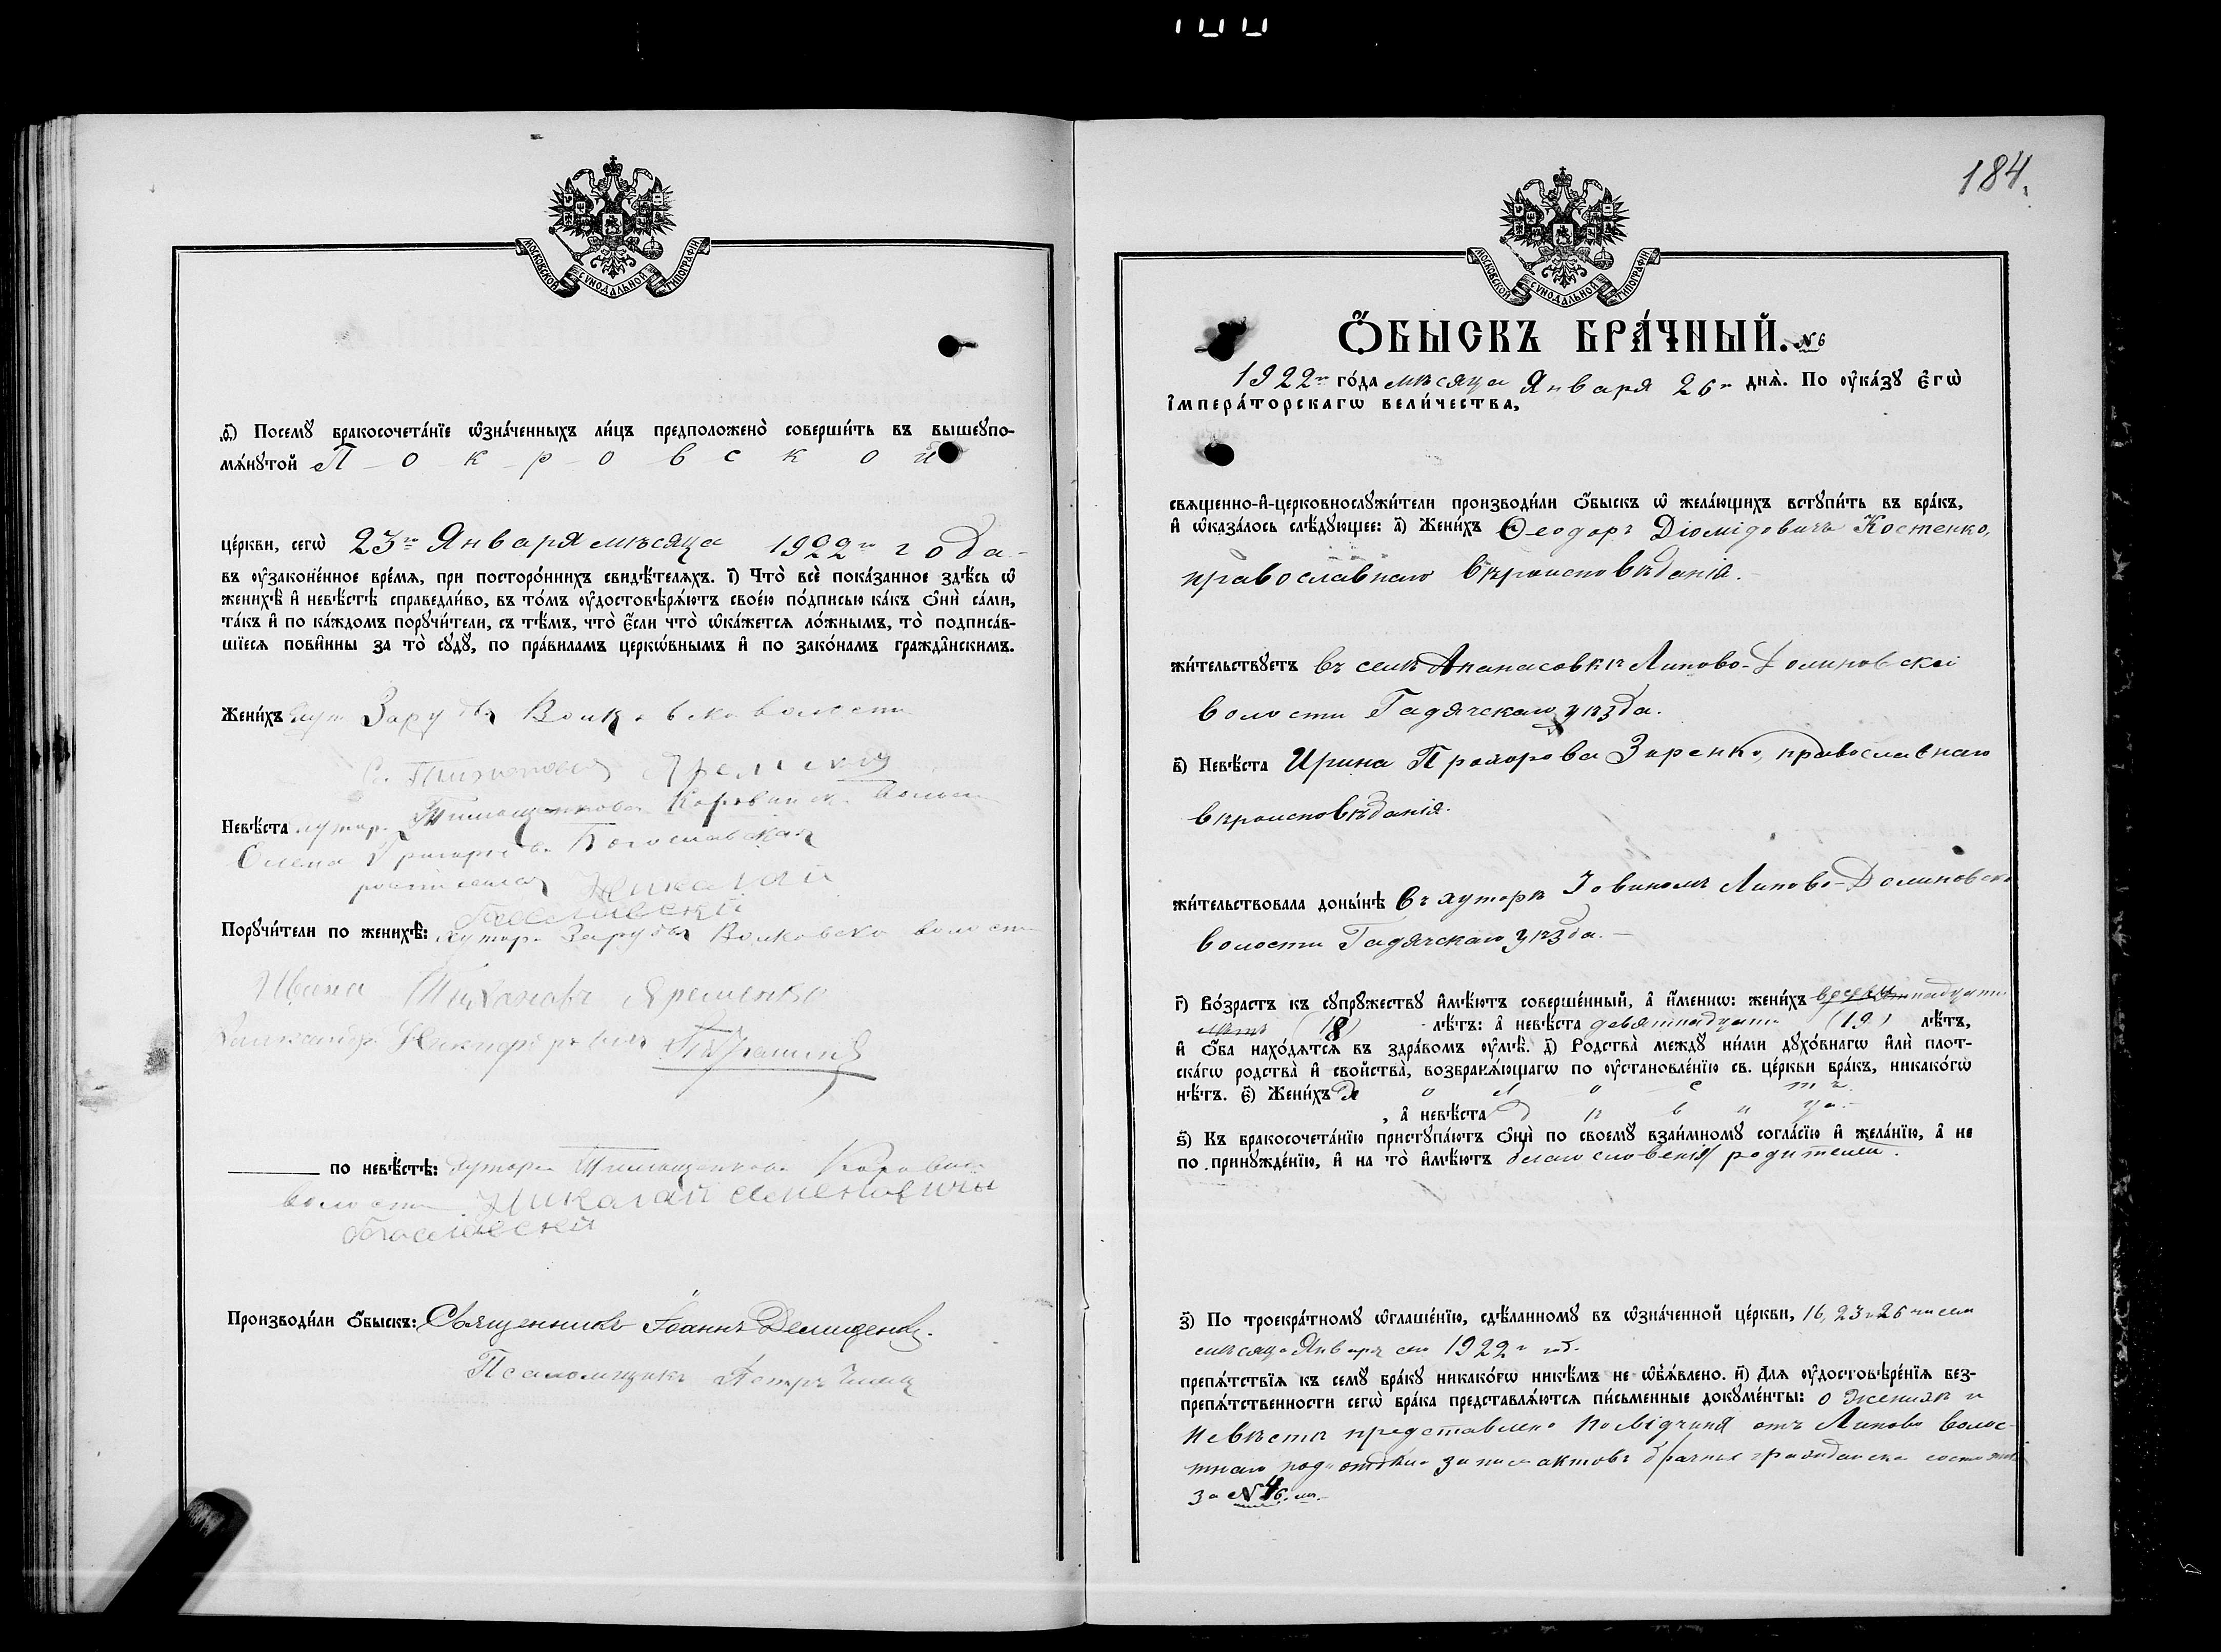 МОСКОВСКОЙ СѴНОДАЛЬНОЙ ТИПОГРАФІИ
.ѳ҃.) Посемꙋ̀ бракосочета́нїе ѡ҆зна́ченныхъ ли́цъ предположено̀ соверши́ть въ вышеꙋпо-
мѧ́нꙋтой Покровской
це́ркви, сегѡ̀ 23го Января мѣсяца 1922го года
въ ᲂу҆законе́нное вре́мѧ, при посторо́ннихъ свидѣ́телѧхъ. і҃) Что̀ всѐ пока́занное здѣ́сь ѡ҆
женихѣ̀ и҆ невѣ́стѣ справедли́во, въ то́мъ ᲂу҆достовѣрѧ́ютъ свое́ю по́дписью ка́къ ѻ҆нѝ са́ми,
та́къ и҆ по ка́ждомъ порꙋчи́тели, съ тѣ́мъ, что̀ є҆́сли что̀ ѡ҆ка́жетсѧ ло́жнымъ, то̀ подписа́в-
шїесѧ пови́нны за то̀ сꙋдꙋ̀, по пра́виламъ церкѡ́внымъ и҆ по зако́намъ гражда̑нскимъ.
Жени́хъ хут. Зарудья Волковско волости
Невѣ́ста хутор. Тимощенкова Коровинск. волос
Олена Григорьева Богославская
росписался Николай
Богославский
Порꙋчи́тели по женихѣ̀: Хутор. Зарудья Волковско волости
Ивана Тихонов Яременко
Александр Никифорович
по невѣ́стѣ: хутора Тимощенкова
волости Николай Семенович
Производи́ли ѻ҆́быскъ: Священникъ Іоаннъ Демиденко.
Псаломщикъ Петръ
184.
МОСКОВСКОЙ СѴНОДАЛЬНОЙ ТИПОГРАФІИ
Ѻ҆́БЫСКЪ БРА́ЧНЫЙ. № 6
1922го го́да мѣсяца Января 26го днѧ̀. По ᲂу҆ка́зꙋ є҆гѡ̀
і҆мпера́торскагѡ вели́чества,
свѧщенно-и҆-церковнослꙋжи́тели производи́ли ѻ҆́быскъ ѡ҆ жела́ющихъ встꙋпи́ть въ бра́къ,
и҆ ѡ҆каза́лось слѣ́дꙋющее: а҃) Жени́хъ Ѳеодоръ Діомідовичъ Костенко,
православнаго вѣроисповѣданія.
жи́тельствꙋетъ въ селѣ Апанасовкѣ Липово-Долиновской
волости Гадячскаго уѣзда.
в҃) Невѣ́ста Ирина Прохорова Заренко, православнаго
вѣроисповѣданія.
жи́тельствовала доны́нѣ въ хуторѣ Липово-Долиновско
волости Гадячскаго уѣзда.
г҃) Во́зрастъ къ сꙋпрꙋ́жествꙋ и҆мѣ́ютъ соверше́нный, а҆ и҆́меннѡ: жени́хъ восемнадцати
(18) лѣ́тъ: а҆ невѣ́ста девятнадцати (19) лѣ́тъ,
и҆ ѻ҆́ба нахо́дѧтсѧ въ здра́вомъ ᲂу҆мѣ̀. д҃) Родства̀ междꙋ ни́ми дꙋхо́внагѡ и҆лѝ плот-
ска́гѡ родства̀ и҆ свойства̀, возбранѧ́ющагѡ по ᲂу҆становле́нїю св. це́ркви бра́къ, никако́гѡ
нѣ́тъ. є҃) Жени́хъ холостъ
, а҆ невѣ́ста дѣвица.
ѕ҃) Къ бракосочета́нїю пристꙋпа́ютъ ѻ҆нѝ по своемꙋ̀ взаи́мномꙋ согла́сїю и҆ жела́нїю, а҆ не
по принꙋжде́нїю, и҆ на то̀ и҆мѣ́ютъ благословенія родителей.
з҃) По троекра́тномꙋ ѡ҆глаше́нїю, сдѣ́ланномꙋ въ ѡ҆зна́ченной це́ркви, 16, 23 и 26 числа
мѣсяца Января сего 1922го год.
препѧ́тствїѧ къ семꙋ̀ бра́кꙋ никако́гѡ никѣ́мъ не ѡ҆б̾ѧ́влено. и҃) Длѧ ᲂу҆достовѣре́нїѧ без-
препѧ́тственности сегѡ̀ бра́ка представлѧ́ютсѧ пи́сьменные докꙋме́нты: о женихѣ и
невѣстѣ представлено посвідчиня отъ Липово волос-
тнаго под'отдѣла запис актовъ брачных гражданска состоянія
за № 46.